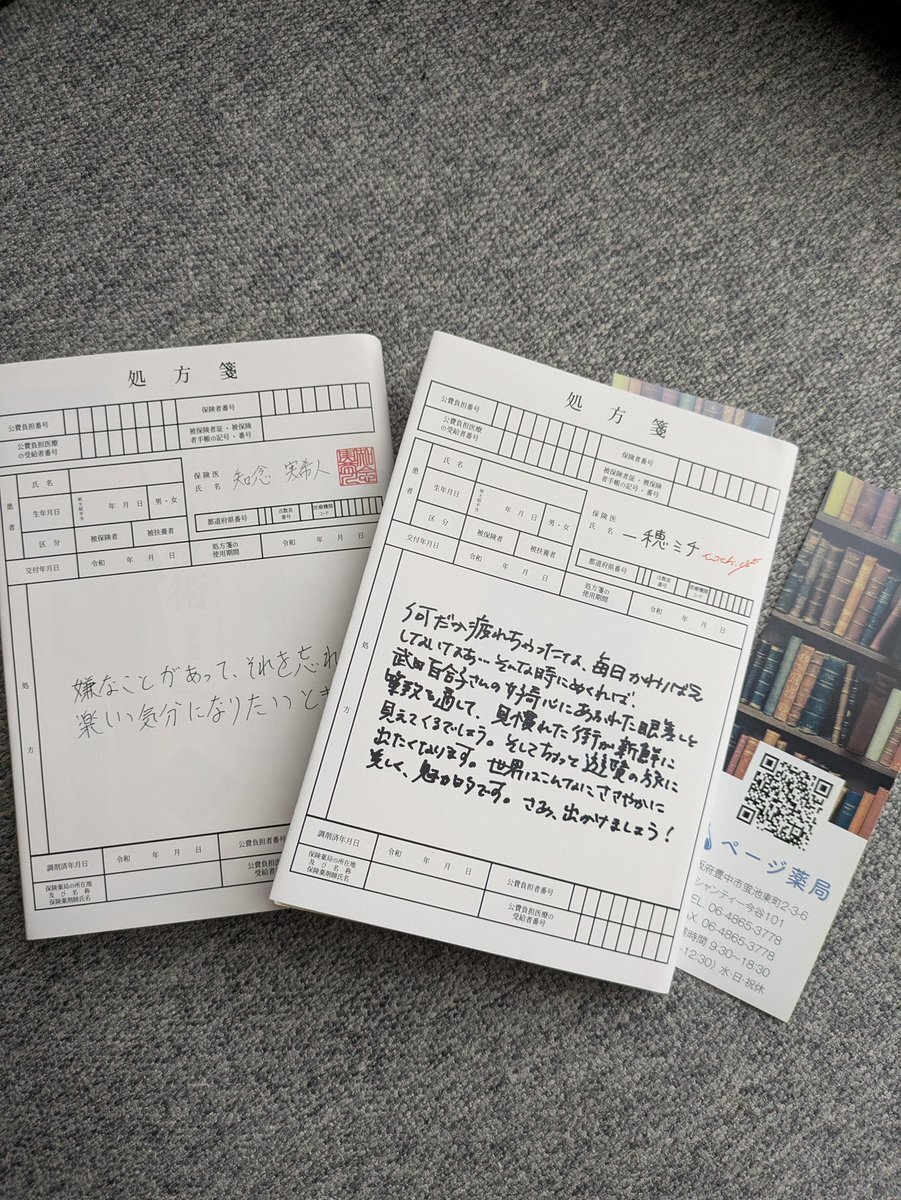 処方箋
公費負担者番号
保険者番号
公費負担医療
の受給者番号
被保険者証・被保険
者手帳の記号・番号
患者
氏名
生年月日
年 月 日
男・女
区分
被保険者
被扶養者
保険医
氏名
知念 実希人
都道府県番号
点数表
番号
医療機関
コード
交付年月日
令和 年 月 日
処方箋の
使用期間
令和 年 月 日
処方
嫌なことがあって、それを忘れ
楽しい気分になりたいとき
調剤済年月日
令和 年 月 日
公費負担
保険薬局の所在地
及び名称
保険薬剤師氏名
処方箋
公費負担者番号
保険者番号
公費負担医療
の受給者番号
被保険者証・被保険
者手帳の記号・番号
患者
氏名
生年月日
年 月 日
男・女
区分
被保険者
被扶養者
保険医
氏名
一穂ミチ
都道府県番号
点数表
番号
医療機関
コード
交付年月日
令和 年 月 日
処方箋の
使用期間
令和 年 月 日
処方
何だか疲れちゃったなぁ、毎日かわりばえ
しないなぁ…そんな時にめくれば、
武田百合子さんの好奇心にあふれた眼差しと
筆致を通して、見慣れた街が新鮮に
見えてくるでしょう。そしてちょっと遊覧の旅に
出たくなります。世界はこんなにささやかに
美しく、魅力的です。さあ、出かけましょう!
調剤済年月日
令和 年 月 日
公費負担者番号
保険薬局の所在地
及び名称
保険薬剤師氏名
公費負担医療の
受給者番号
ページ薬局
阪府豊中市蛍池東町2-3-6
シャンティー今谷101
EL 06-4865-3778
AX 06-4865-3778
時間 9:30~18:30
-12:30) 水・日・祝休